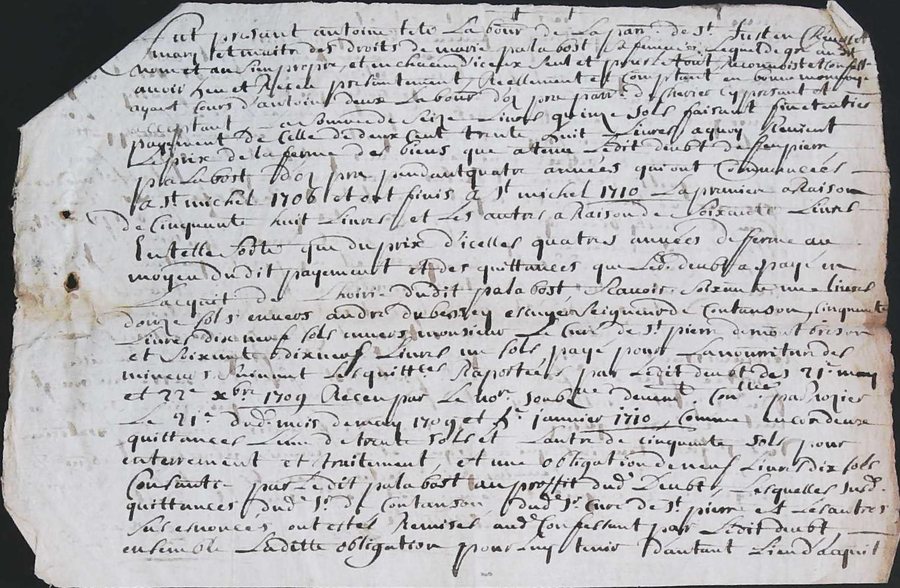 fut present antoine tete Labour de La parr de st Just en
mary et maitre des droits de marie palabost sa femme Lequel de gre en son
nom et au sien propre, et un chacun d'iceux seul et pour le tout Reconoist et confesse
auoir heu et Receu presentement Reellement et Comptant en bonne monnoye
ayant Cours d'antoine deux Labour dud parr d' cy present et
acceptant La Somme de Seize Liures quinze sols faisant fin et entier
payement de Celle de deux Cent trente huit Liures a quoy Reuient
Le prix de la ferme des biens que a tenu Ledit deubt de feu pierre
palabost pendant quatre années qui ont Commencées
a st michel 1706 et ont finis a st michel 1710 La premiere a Raison
de Cinquante huit Liures et Les autres a Raison de soixante Liures
En telle sorte que du prix d'icelles quatres années de ferme au
moyen du dit payement et des quittances que Led deubt a payé en
Lacquit de Lhoirie dudit palabost scauoir soixante une liures
douze sols enuers andre du besset escuyer seigneur de Contanson, Cinquante
Liures dix neuf sols enuers monsieur Le Curé de st pierre de montbrison
et soixante dix neuf Liures un sols payé pour La nourriture des
mineurs suiuant Les quittces Raportées par Ledit deubt des 21e may
et 22e xbre 1709 Receu par Le nore
Le 21e dud mois de may 1709 et janvier 1710, Comme encor deux
quittances Lune de trente sols et Lautre de cinquante sols pour
enterrement et traitement, et une obligation de neuf Liures dix sols
Consantie par Ledit palabost au proffit dud Deubt, Lesquelles susd
quittances dud sr de Contanson, dud sr Curé de st pierre et Les autres
sus enoncés, ont estés Remises aud Confessant par Ledit deubt
ensemble Ladette obligation pour Luy tenir d'autant Lieu d'acquit